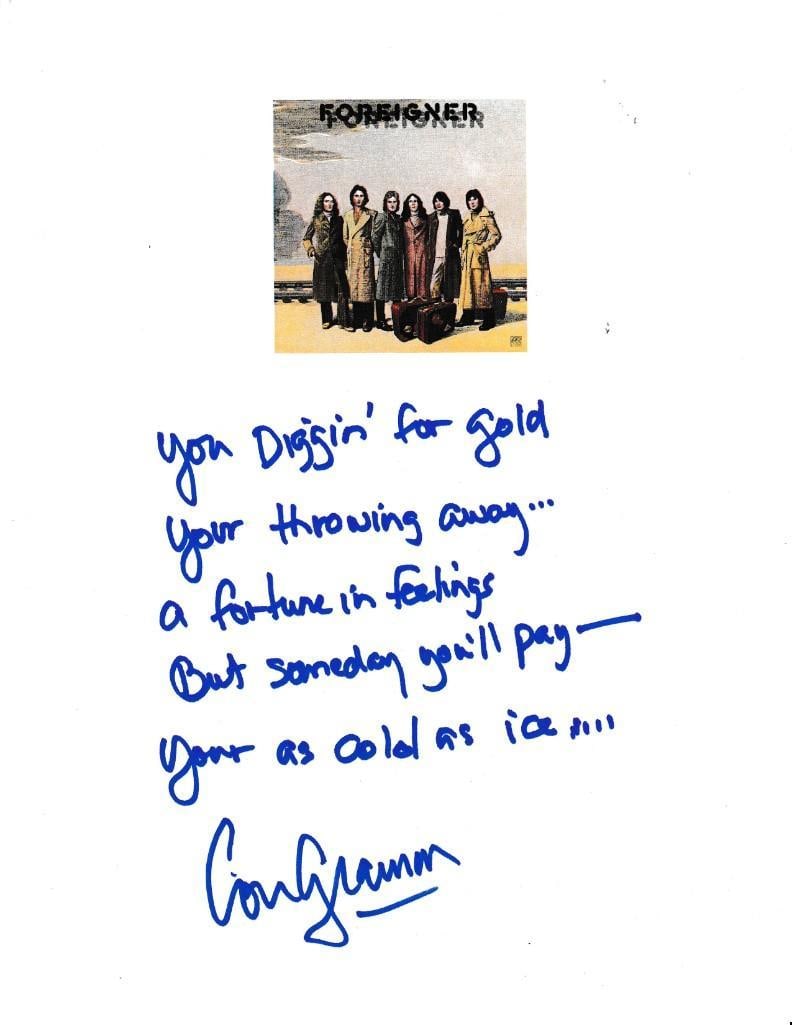 FOREIGNER
FOREIGNER
you Diggin' for gold
your throwing away...
a fortune in feelings
But someday you'll pay—
your as cold as ice.....
Lou Gramm